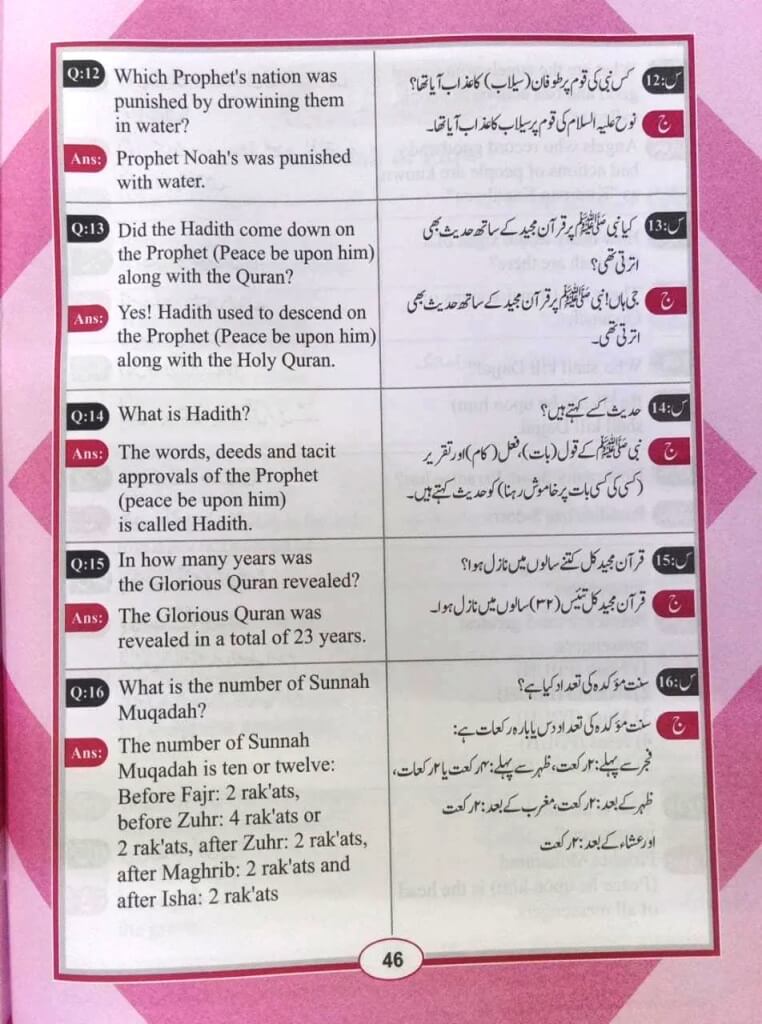 Q:12 Which Prophet's nation was
punished by drowining them
in water?
Ans: Prophet Noah's was punished
with water.
س:12 کس نبی کی قوم پر طوفان (سیلاب) کا عذاب آیا تھا؟
ج نوح علیہ السلام کی قوم پر سیلاب کا عذاب آیا تھا۔
Q:13 Did the Hadith come down on
the Prophet (Peace be upon him)
along with the Quran?
Ans: Yes! Hadith used to descend on
the Prophet (Peace be upon him)
along with the Holy Quran.
س:13 کیا نبی ﷺ پر قرآن مجید کے ساتھ حدیث بھی
اترتی تھی؟
ج جی ہاں! نبی ﷺ پر قرآن مجید کے ساتھ حدیث بھی
اترتی تھی۔
Q:14 What is Hadith?
Ans: The words, deeds and tacit
approvals of the Prophet
(peace be upon him)
is called Hadith.
س:14 حدیث کسے کہتے ہیں؟
ج نبی ﷺ کے قول (بات)، فعل (کام) اور تقریر
(کسی کی کسی بات پر خاموش رہنا) کو حدیث کہتے ہیں۔
Q:15 In how many years was
the Glorious Quran revealed?
Ans: The Glorious Quran was
revealed in a total of 23 years.
س:15 قرآن مجید کل کتنے سالوں میں نازل ہوا؟
ج قرآن مجید کل تئیس (۳۲) سالوں میں نازل ہوا۔
Q:16 What is the number of Sunnah
Muqadah?
Ans: The number of Sunnah
Muqadah is ten or twelve:
Before Fajr: 2 rak'ats,
before Zuhr: 4 rak'ats or
2 rak'ats, after Zuhr: 2 rak'ats,
after Maghrib: 2 rak'ats and
after Isha: 2 rak'ats
س:16 سنت مؤکدہ کی تعداد کیا ہے؟
ج سنت مؤکدہ کی تعداد دس یا بارہ رکعات ہے:
فجر سے پہلے: ۲ رکعت، ظہر سے پہلے: ۴ رکعت یا ۲ رکعات،
ظہر کے بعد: ۲ رکعت، مغرب کے بعد: ۲ رکعت
اور عشاء کے بعد: ۲ رکعت
46